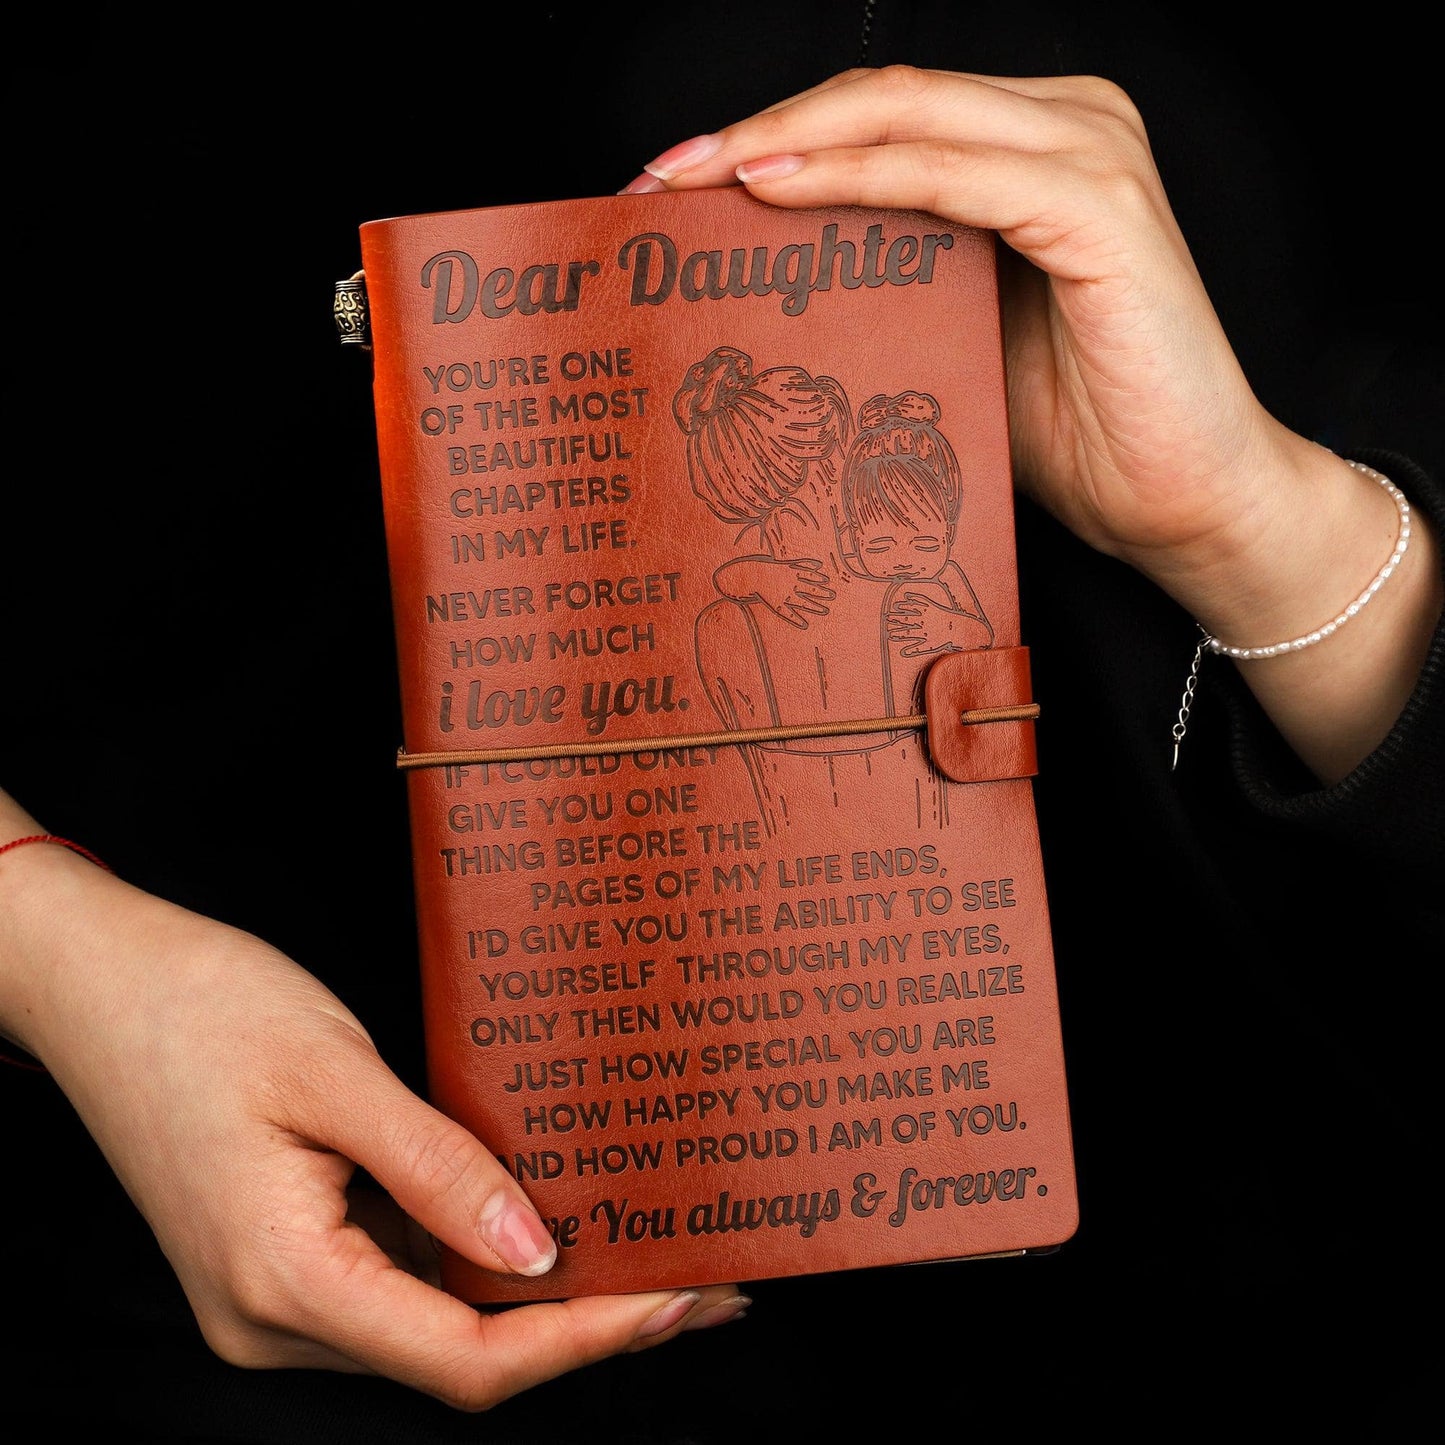 Dear Daughter
YOU'RE ONE
OF THE MOST
BEAUTIFUL
CHAPTERS
IN MY LIFE.
NEVER FORGET
HOW MUCH
i love you.
IF I COULD ONLY
GIVE YOU ONE
THING BEFORE THE
PAGES OF MY LIFE ENDS,
I'D GIVE YOU THE ABILITY TO SEE
YOURSELF THROUGH MY EYES,
ONLY THEN WOULD YOU REALIZE
JUST HOW SPECIAL YOU ARE
HOW HAPPY YOU MAKE ME
AND HOW PROUD I AM OF YOU.
You always & forever.